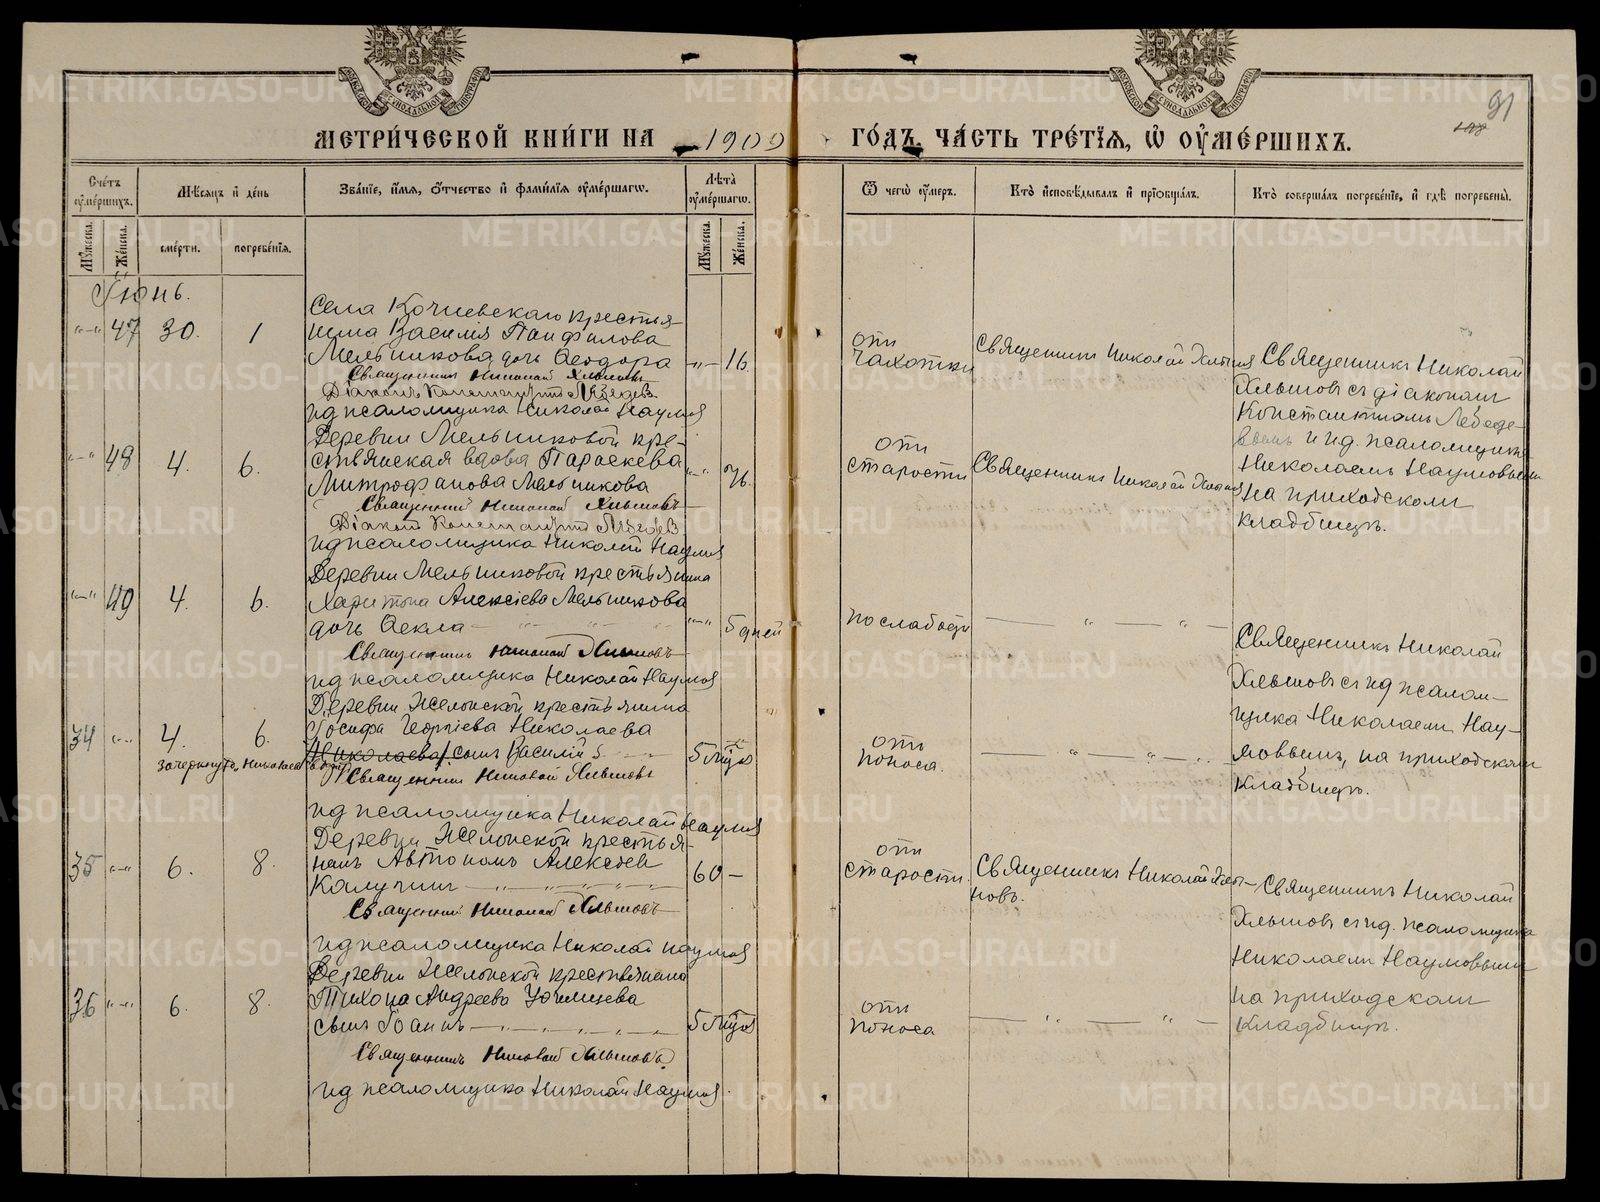 МЕТРИ́ЧЕСКОЙ КНИ́ГИ НА 1909
ГО́ДЪ, ЧА́СТЬ ТРЕ́ТЇѦ, Ѡ҆ ОУ҆МЕ́РШИХЪ.
91
Счетъ оумершихъ.
Мѣсяцъ и день
Званіе, имя, отчество и фамилія оумершагѡ.
Лѣта оумершагѡ.
Ѿ чегѡ оумеръ.
Кто исповѣдывалъ и пріобщалъ.
Кто совершалъ погребеніе, и гдѣ погребены.
Мужеска.
Женска.
смерти.
погребенія.
Мужеска.
Женска.
Іюнь.
„—„ 47 30. 1
Села Кочневскаго крестья-
нина Василія Панфилова
Мельникова дочь Ѳеодора
„—„ 16.
отъ
чахотки
Священникъ Николай Хлыновъ
Священникъ Николай
Хлыновъ съ діакономъ
Константиномъ Лебеде-
вымъ и и.д. псаломщика
Николаемъ Наумовымъ
на приходскомъ
кладбищѣ.
Священникъ Николай Хлыновъ
Діаконъ Константинъ Лебедевъ
ид псаломщика Николай Наумовъ
„—„ 48 4. 6.
Деревни Мельниковой кре-
стьянская вдова Параскева
Митрофанова Мельникова
„—„ 76.
отъ
старости
Священникъ Николай Хлыновъ
Священникъ Николай Хлыновъ
Діаконъ Константинъ Лебедевъ
ид псаломщика Николай Наумовъ
„—„ 49 4. 6.
Деревни Мельниковой крестьянина
Харитона Алексіева Мельникова
дочь Ѳекла
„—„ 5 дней
по слабости
Священникъ Николай
Хлыновъ съ ид псалом-
щика Николаемъ Нау-
мовымъ, на приходскомъ
кладбищѣ.
Священникъ Николай Хлыновъ
ид псаломщика Николай Наумовъ
34 „—„ 4. 6.
Деревни Жел крестьянина
Іосифа Георгіева Николаева
Николаева сынъ Василій
5 мѣс
отъ
поноса.
зачеркнуто „Николаева"
Священникъ Николай Хлыновъ
ид псаломщика Николай Наумовъ
35 „—„ 6. 8.
Деревни крестья-
нинъ Автономъ Алексѣевъ
Калугинъ
60 —
отъ
старости.
Священникъ Николай Хлы-
новъ.
Священникъ Николай
Хлыновъ съ ид. псаломщика
Николаемъ Наумовымъ
на приходскомъ
кладбищѣ.
Священникъ Николай Хлыновъ
ид псаломщика Николай Наумовъ
36 „—„ 6. 8.
Деревни крестьянина
Тихона Андреева
сынъ Іоаннъ
5 мѣс
отъ
поноса
Священникъ Николай Хлыновъ
ид псаломщика Николай Наумовъ.
METRIKI.GASO-URAL.RU